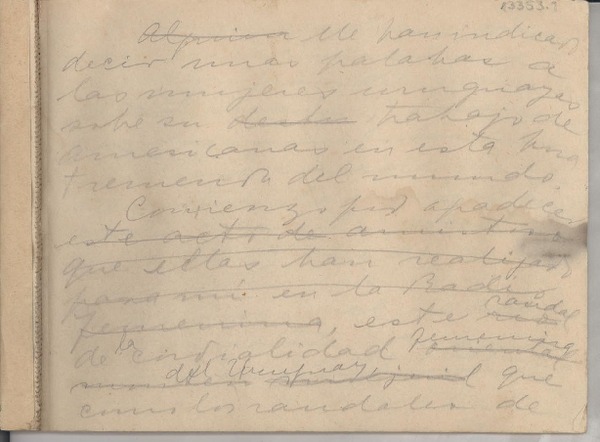 13353.1
Me han indicado
decir unas palabras a
las mujeres uruguayas
sobre su trabajo de
americanas en esta hora
tremenda del mundo.
Comienzo por agradecer
este acto de amistad
que ellas han realizado
para mí en la Radio
raudal
Femenina, este
de cordialidad femenina
del Uruguay que
como los raudales de